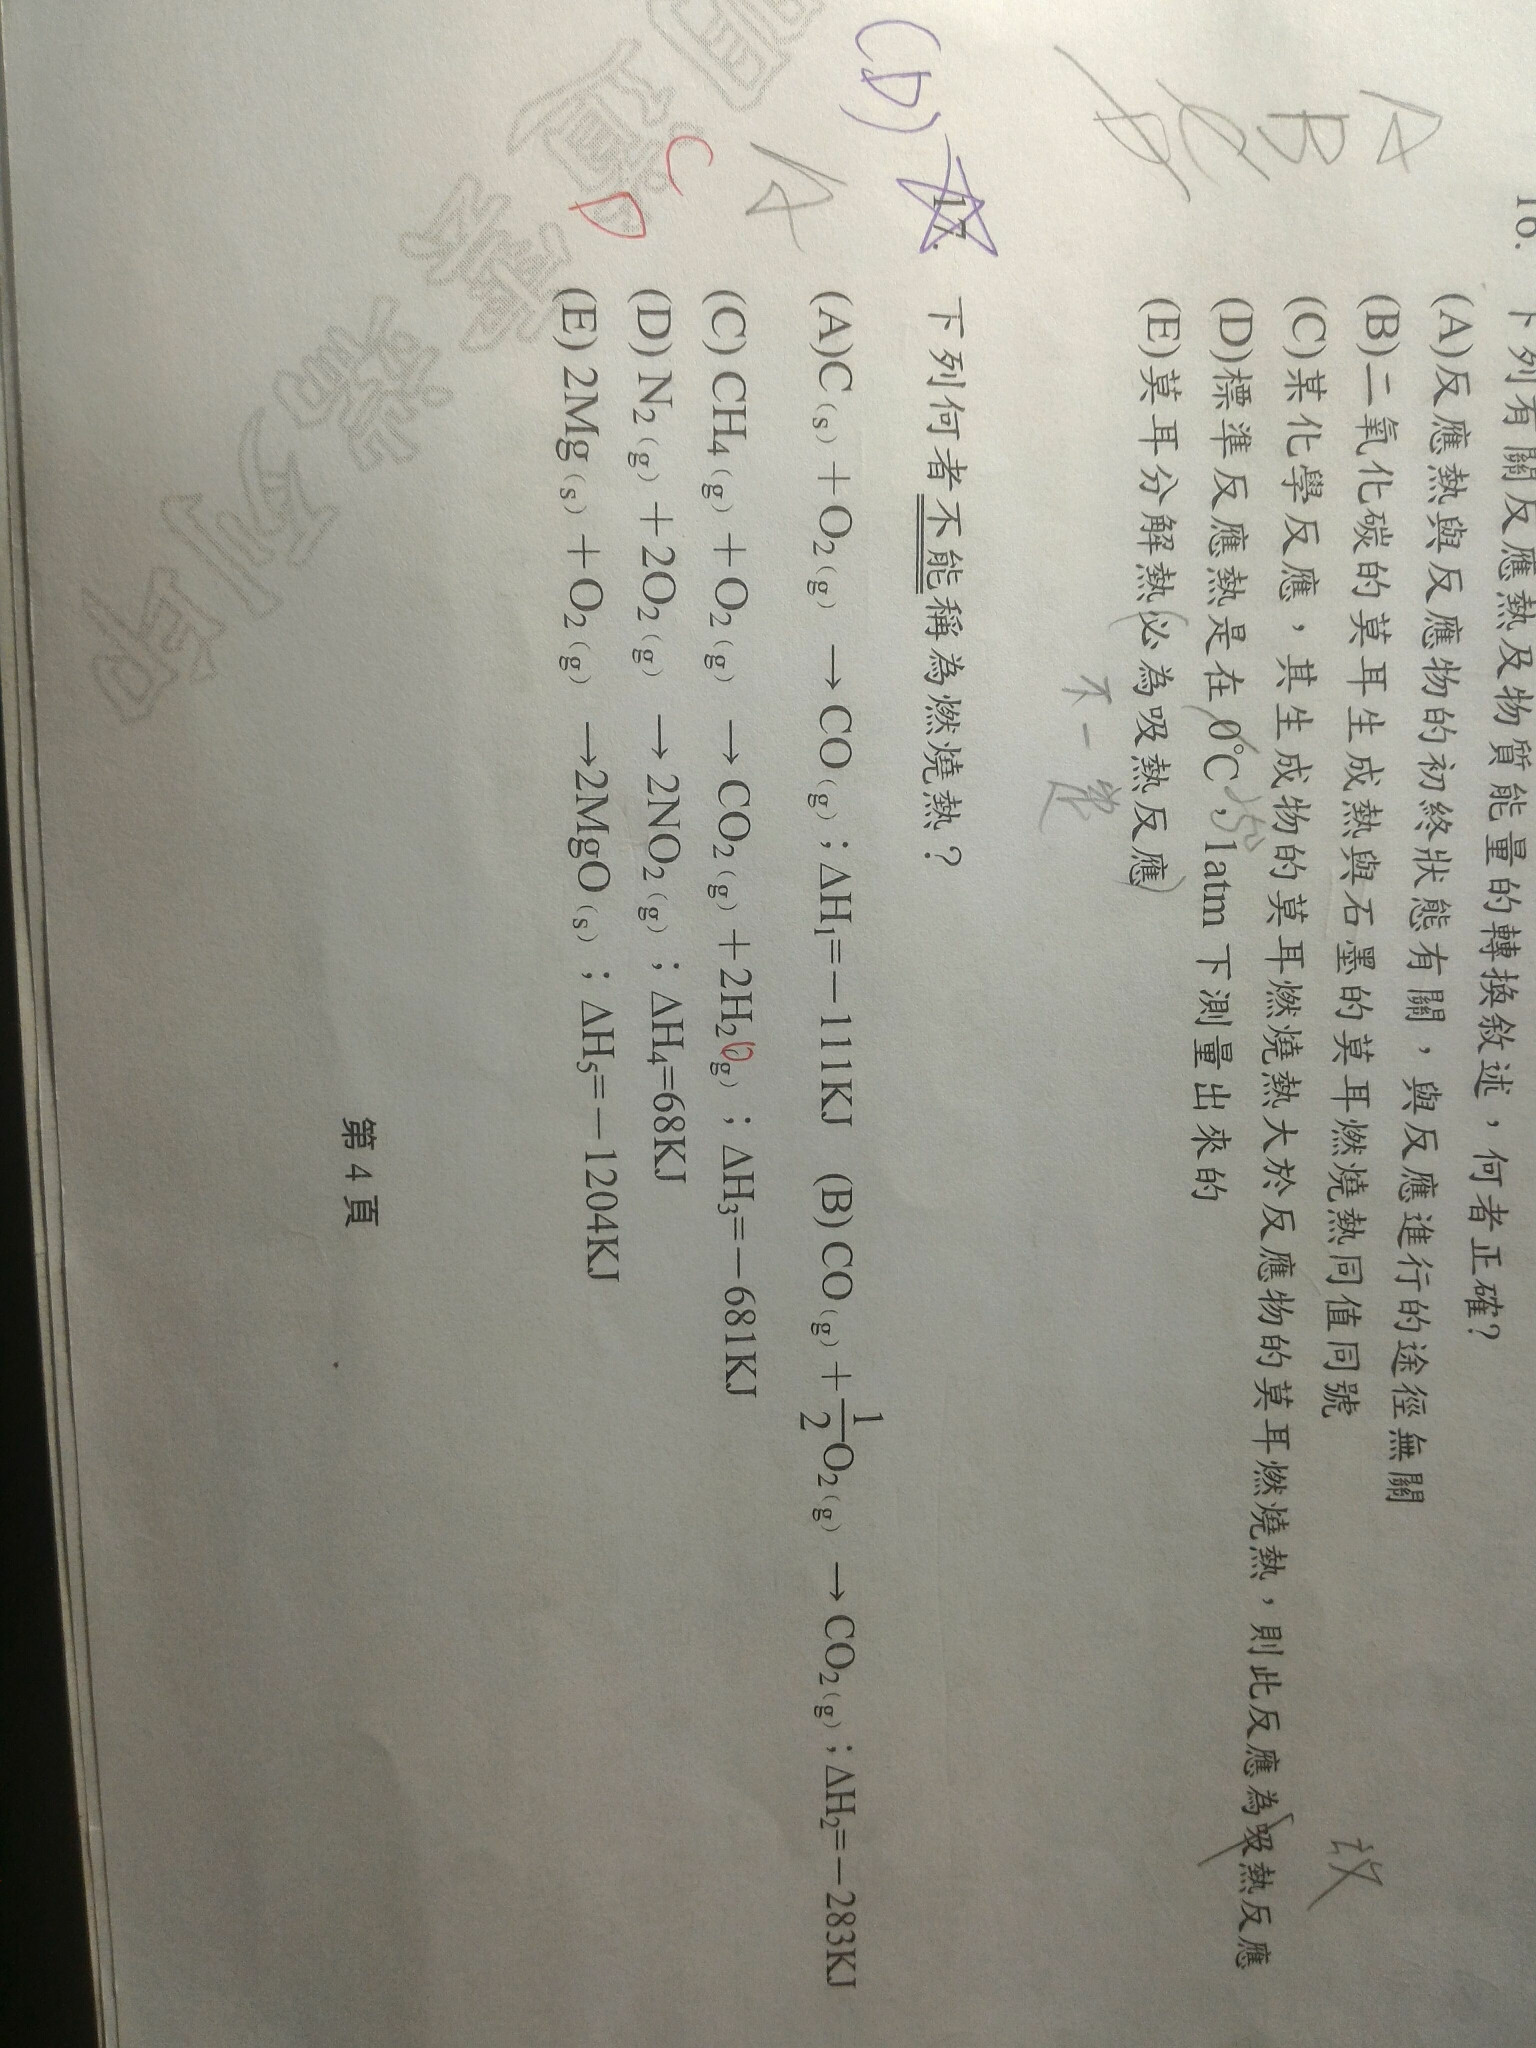 16. 下列有關反應熱及物質能量的轉換敘述，何者正確?
(A)反應熱與反應物的初終狀態有關，與反應進行的途徑無關
(B)二氧化碳的莫耳生成熱與石墨的莫耳燃燒熱同值同號
(C)某化學反應，其生成物的莫耳燃燒熱大於反應物的莫耳燃燒熱，則此反應為吸熱反應
放
(D)標準反應熱是在 0℃，1atm 下測量出來的
25°
(E)莫耳分解熱必為吸熱反應
不一定
A
B
C
(D) 17. 下列何者不能稱為燃燒熱？
(A)C(s)＋O2(g) →CO(g)；ΔH1=－111KJ (B) CO(g)＋1/2O2(g) →CO2(g)；ΔH2=－283KJ
(C) CH4(g)＋O2(g) →CO2(g)＋2H2O(g)；ΔH3=－681KJ
(D) N2(g)＋2O2(g) →2NO2(g)；ΔH4=68KJ
(E) 2Mg(s)＋O2(g) →2MgO(s)；ΔH5=－1204KJ
A
C
D
第 4 頁
請尊重
勿列印